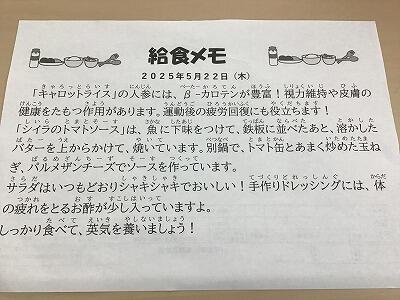 給食メモ
2025年5月22日（木）
「キャロットライス」の人参には、β-カロテンが豊富！視力維持や皮膚の
健康をたもつ作用があります。運動後の疲労回復にも役立ちます！
「シイラのトマトソース」は、魚に下味をつけて、鉄板に並べたあと、溶かした
バターを上からかけて、焼いています。別鍋で、トマト缶とあまく炒めた玉ね
ぎ、パルメザンチーズでソースを作っています。
サラダはいつもどおりシャキシャキでおいしい！手作りドレッシングには、体
の疲れをとるお酢が少し入っていますよ。
しっかり食べて、英気を養いましょう！